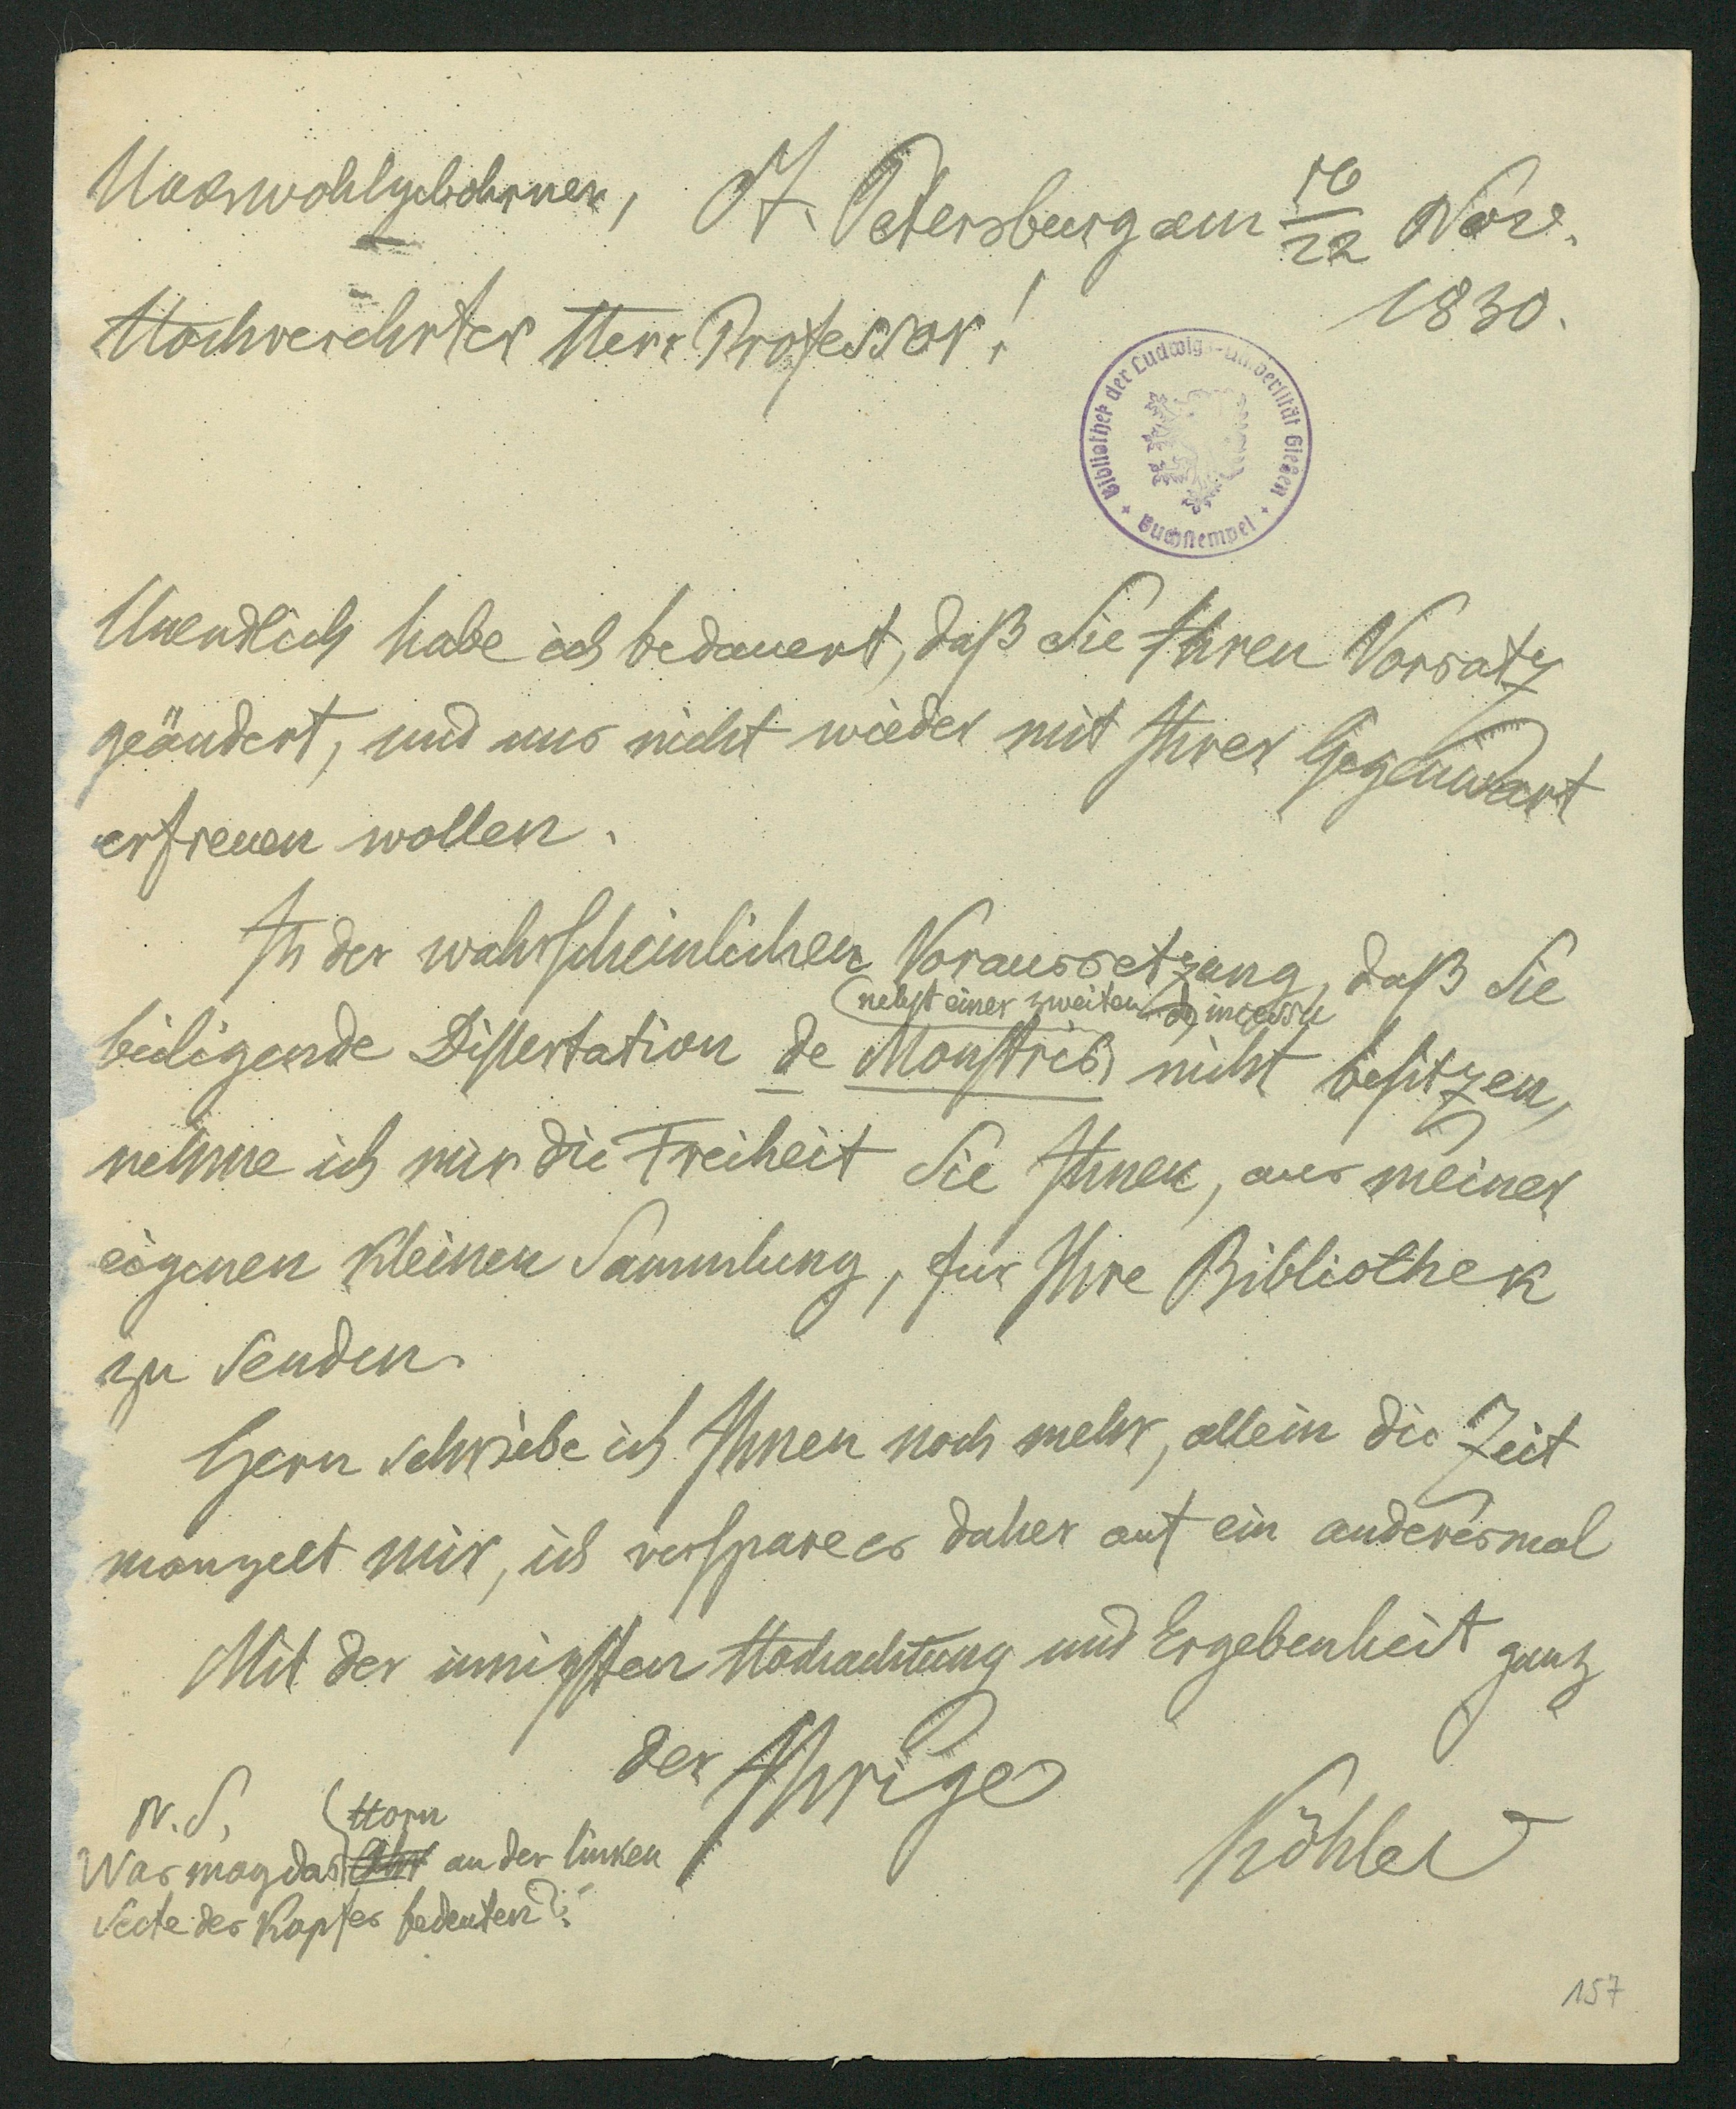 Hochwohlgebohrner, St. Petersburg am 10/22 Nov.
1830.
Hochverehrter Herr Professor!
Bibliothek der Ludwigs-Universität Gießen
Buchstempel
Unendlich habe ich bedauert, daß Sie Ihren Vorsatz
geändert, und uns nicht wieder mit Ihrer Gegenwart
erfreuen wollen.
In der wahrscheinlichen Voraussetzung, daß Sie
(nebst einer zweiten de incessu
beiligende Dissertation de Monstris) nicht besitzen,
nehme ich mir die Freiheit Sie Ihnen, aus meiner
eigenen kleinen Sammlung, fur Ihre Bibliothek
zu senden.
Gern schriebe ich Ihnen noch mehr, allein die Zeit
mangelt mir, ich verspare es daher auf ein anderesmal
Mit der innigsten Hochachtung und Ergebenheit ganz
der Ihrige
Köhler
N.S.
Horn
Was mag das Ohr an der linken
Seite des Kopfes bedeuten?
157